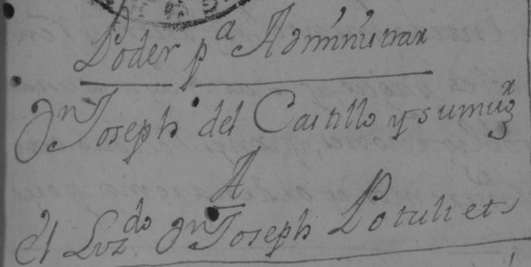 Poder pa Adminnistrar
Dn Joseph del Castillo y sumugr
A
el Lizdo Dn Joseph Potuliets